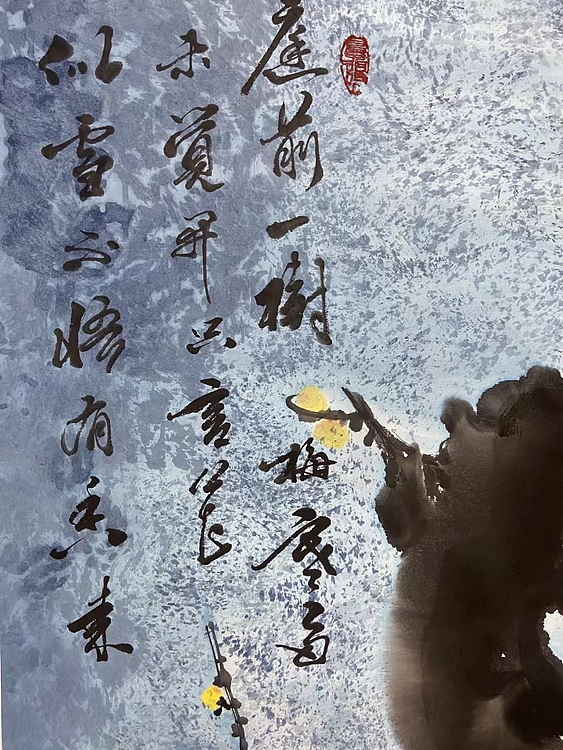 庭前一樹梅寒多
未覺开只言花
似雪不悟有香来